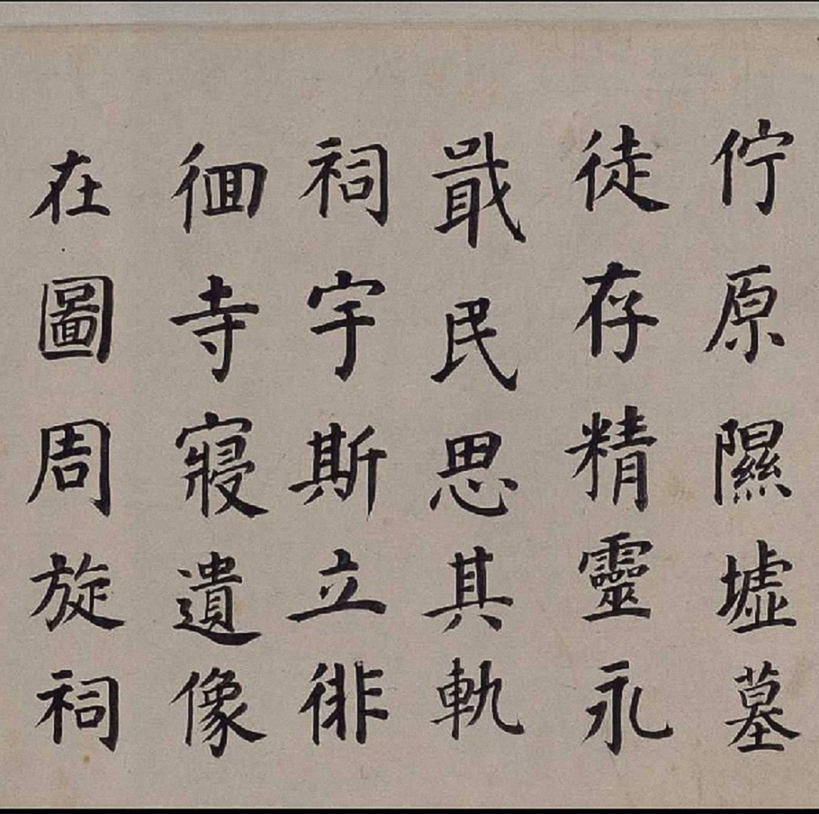 佇原隰墟墓
徒存精靈永
戢民思其軌
祠宇斯立徘
徊寺寢遺像
在圖周旋祠